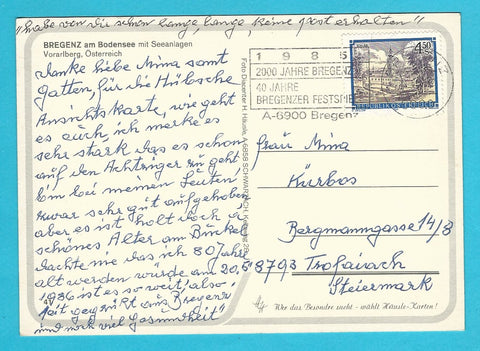 "habe von dir schon lange, lange, keine Post erhalten"
BREGENZ am Bodensee mit Seeanlagen
Vorarlberg, Österreich
Danke liebe Mina samt
Gatten, für die Hübsche
Ansichtskarte, wie geht
es euch, ich merke es
sehr stark das es schon
auf den Achtziger zu geht
bin bei meinen Leuten,
zwar sehr gut aufgehoben,
aber es ist halt doch a
schönes Alter am Buckel
dachte nie das ich 80 Jahre
alt werden würde am 20,5
1986 ist es so weit, also
seit gegrüßt aus Bregenz
und noch viel Gesundheit"
1 9 8 5
2000 JAHRE BREGENZ
40 JAHRE
BREGENZER FESTSPIE
A-6900 Bregenz
4.50
REPUBLIK ÖSTERREICH
Frau Mina
Kürbos
Bergmanngasse 14/8
8793 Trofaiach
Steiermark
Wer das Besondre sucht - wählt Häusle-Karten!